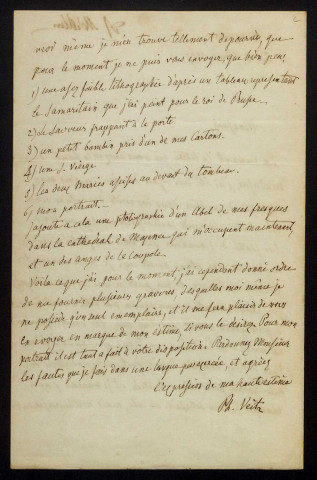 2
moi même je m'en trouve tellement depourvu, que
pour le moment je ne puis vous envoyer, que bien peu;
1) une assez foible lithographie d'après un tableau representant
le Samaritain que j'ai peint pour le roi de Prusse.
2) le Sauveur frappant à la porte
3) un petit bambin pris d'un de mes Cartons.
4) une S. Vierge
5) les deux Maries assises au devant du tombeau.
6) mon portrait.
J'ajoute a cela une photographie d'un Abel de mes fresques
dans la cathedral de Mayence qui m'occupent maintenant
et un des anges de la Coupole.
Voila ce que j'ai pour le moment, j'ai cependant donné ordre
de me fournir plusieurs gravures, desquelles moi même je
ne possede qu'un seul exemplaire, et il me fera plaisir de vous
les envoyer en marque de mon estime, si vous le desirez. Pour mon
portrait il est tout a fait à votre disposition. Pardonnez Monsieur
les fautes que je fais dans une langue peu exercée, et agréez
l'expression de ma haute estime
Ph. Veit